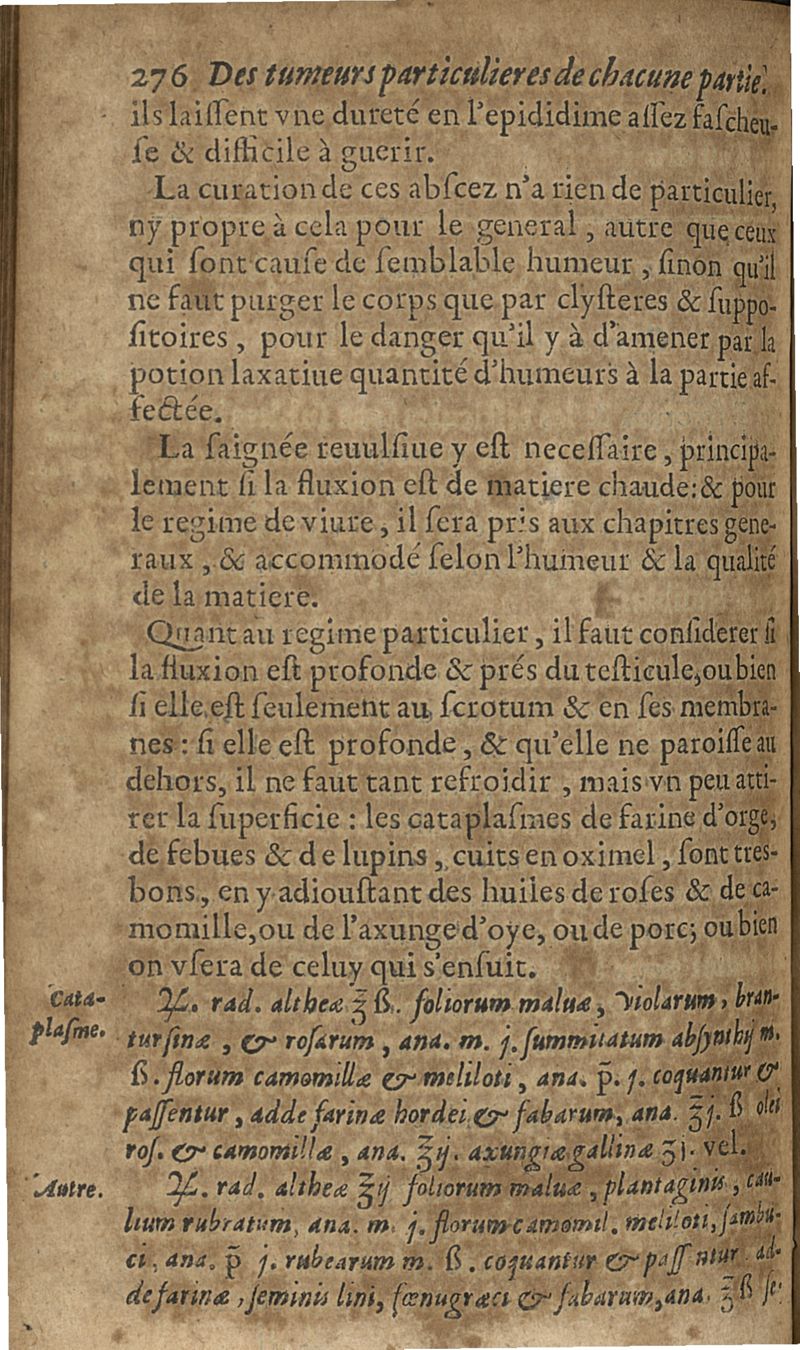 276 Des tumeurs particulieres de chacune partie.
ils laiſſent vne dureté en l'epididime aſſez faſcheu-
ſe & difficile à guerir.
La curation de ces abſcez n'a rien de particulier,
ny propre à cela pour le general, autre que ceux
qui ſont cauſe de ſemblable humeur, ſinon qu'il
ne faut purger le corps que par clyſteres & ſuppo-
ſitoires, pour le danger qu'il y à d'amener par la
potion laxatiue quantité d'humeurs à la partie af-
fectée.
La ſaignée reuulſiue y eſt neceſſaire, principa-
lement ſi la fluxion eſt de matiere chaude: & pour
le regime de viure, il ſera pris aux chapitres gene-
raux, & accommodé ſelon l'humeur & la qualité
de la matiere.
Quant au regime particulier, il faut conſiderer ſi
la fluxion eſt profonde & prés du teſticule, ou bien
ſi elle eſt ſeulement au ſcrotum & en ſes membra-
nes: ſi elle eſt profonde, & qu'elle ne paroiſſe au
dehors, il ne faut tant refroidir, mais vn peu atti-
rer la ſuperficie: les cataplaſmes de farine d'orge,
de febues & de lupins, cuits en oximel, ſont tres-
bons, en y adiouſtant des huiles de roſes & de ca-
momille, ou de l'axunge d'oye, ou de porc; ou bien
on vſera de celuy qui s'enſuit.
Cata-
plaſme.
℞. rad. altheæ ℥ ß. foliorum maluæ, violarum, bran-
turſinæ, & roſarum, ana. m. j. ſummitatum abſynthij m.
ß. florum camomillæ & meliloti, ana. p̄. j. coquantur &
paſſentur, adde farinæ hordei & fabarum, ana. ℥j. ß olei
roſ. & camomillæ, ana. ℥ij. axungiæ gallinæ ʒj. vel.
Autre.
℞. rad. altheæ ℥ij foliorum maluæ, plantaginis, cau-
lium rubratum, ana. m. j. florum camomil. meliloti, ſambu-
ci, ana. p̄ j. rubearum m. ß. coquantur & paſſ ntur ad-
de farinæ, ſeminis lini, fœnugræci & fabarum, ana. ℥ ß ſe-